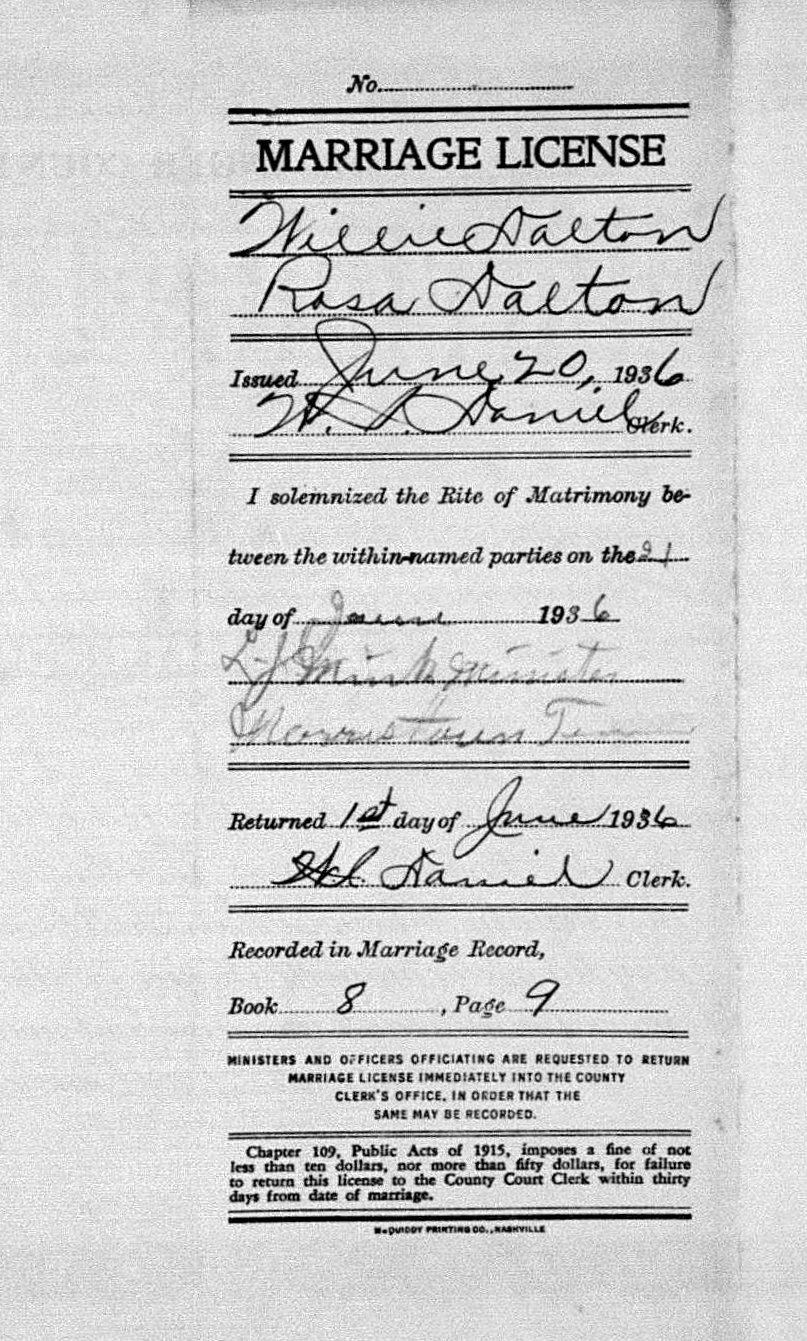 No.
MARRIAGE LICENSE
Willie Dalton
Rosa Dalton
Issued June 20, 1936
W. S. Daniel Clerk.
I solemnized the Rite of Matrimony be-
tween the within-named parties on the 21
day of June 1936
L J Mink Minister
Morristown Tenn
Returned 1st day of June 1936
W S Daniel Clerk.
Recorded in Marriage Record,
Book 8, Page 9
MINISTERS AND OFFICERS OFFICIATING ARE REQUESTED TO RETURN
MARRIAGE LICENSE IMMEDIATELY INTO THE COUNTY
CLERK'S OFFICE, IN ORDER THAT THE
SAME MAY BE RECORDED.
Chapter 109, Public Acts of 1915, imposes a fine of not
less than ten dollars, nor more than fifty dollars, for failure
to return this license to the County Court Clerk within thirty
days from date of marriage.
McQUIDDY PRINTING CO., NASHVILLE